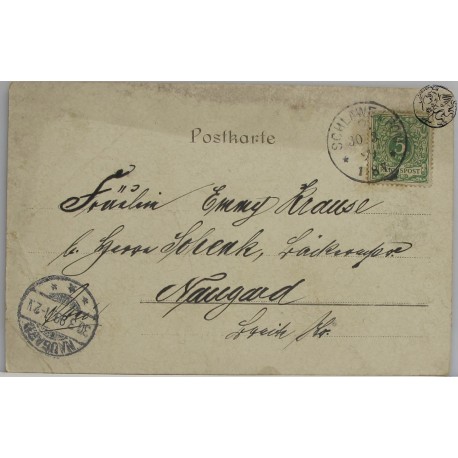 Postkarte
SCHLAWE
5
REICHSPOST
Fräulein Emmy Krause
b. Herrn Schenk, Bäckermstr.
Naugard
Breite Str.
NAUGARD